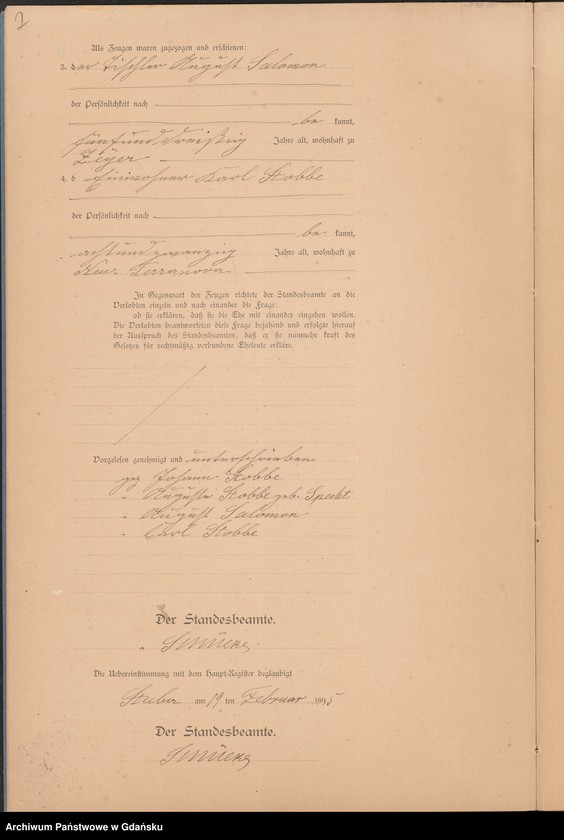 2
Als Zeugen waren zugezogen und erschienen:
3. der Tischler August Salomon
der Persönlichkeit nach
be kannt,
fünfunddreißig Jahre alt, wohnhaft zu
Zeyer
4. d Einwohner Karl Stobbe
der Persönlichkeit nach
be kannt,
achtundzwanzig Jahre alt, wohnhaft zu
Neu Terranova
In Gegenwart der Zeugen richtete der Standesbeamte an die
Verlobten einzeln und nach einander die Frage:
ob sie erklären, daß sie die Ehe mit einander eingehen wollen.
Die Verlobten beantworteten diese Frage bejahend und erfolgte hierauf
der Ausspruch des Standesbeamten, daß er sie nunmehr kraft des
Gesetzes für rechtmäßig verbundene Eheleute erkläre.
Vorgelesen genehmigt und unterschrieben
gez Johann Stobbe
" Auguste Stobbe geb. Specht
" August Salomon
" Carl Stobbe
Der Standesbeamte.
"
Die Uebereinstimmung mit dem Haupt-Register beglaubigt
am 19 ten Februar 1895
Der Standesbeamte.
Archiwum Państwowe w Gdańsku